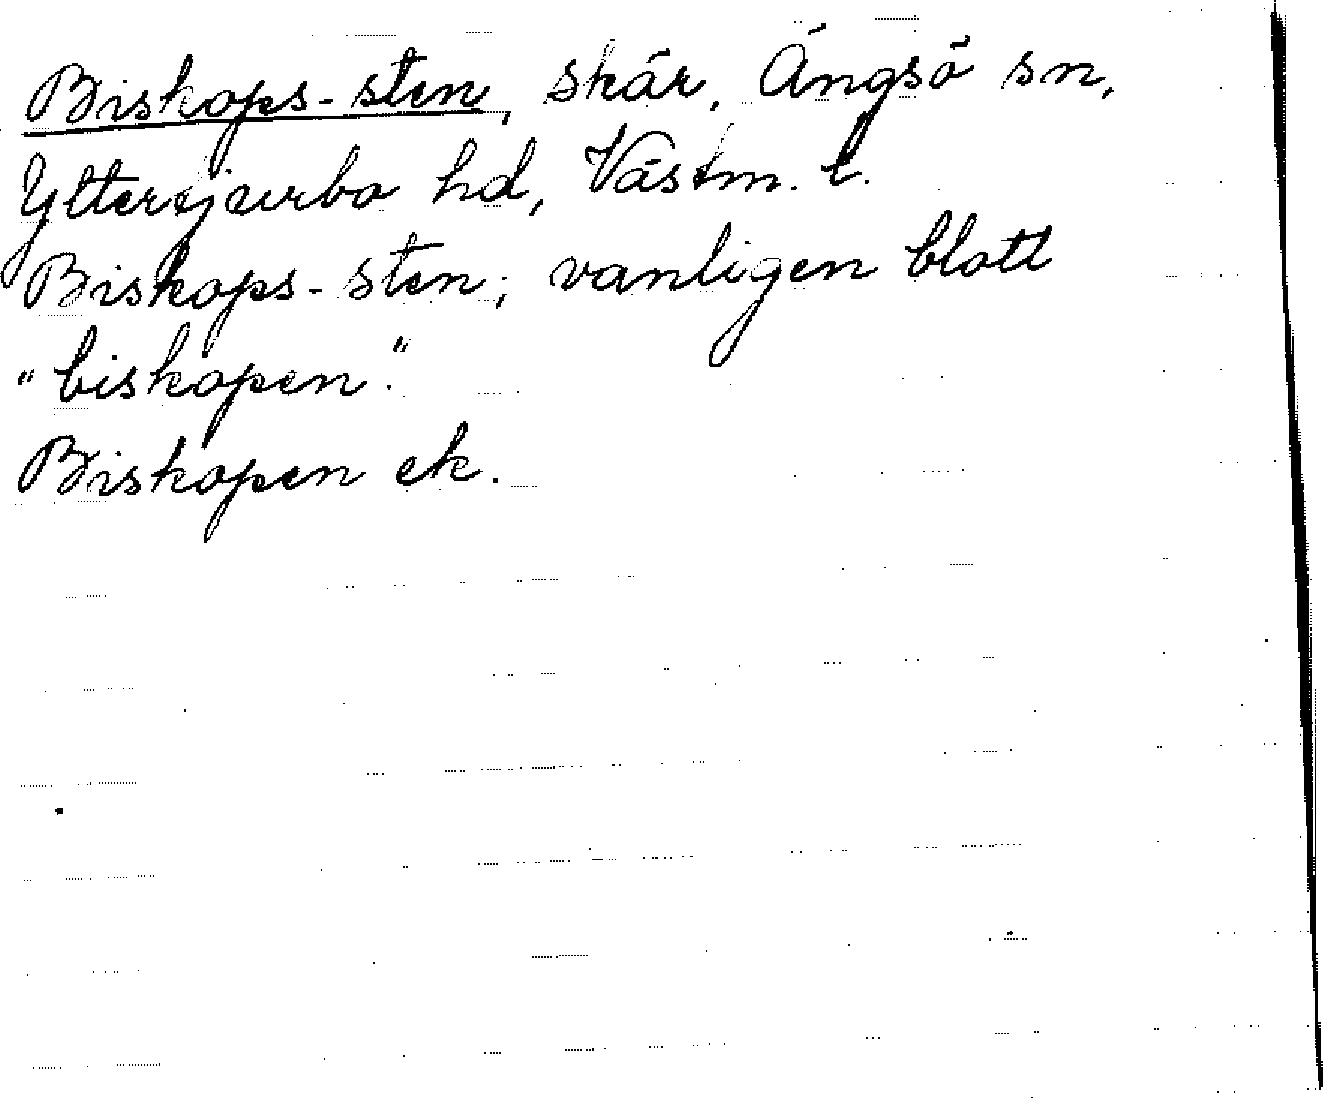 Biskops-sten, skär, Ängsö sn,
Yttertjurbo hd, Västm. l.
Biskops-sten; vanligen blott
"biskopen."
Biskopen ek.